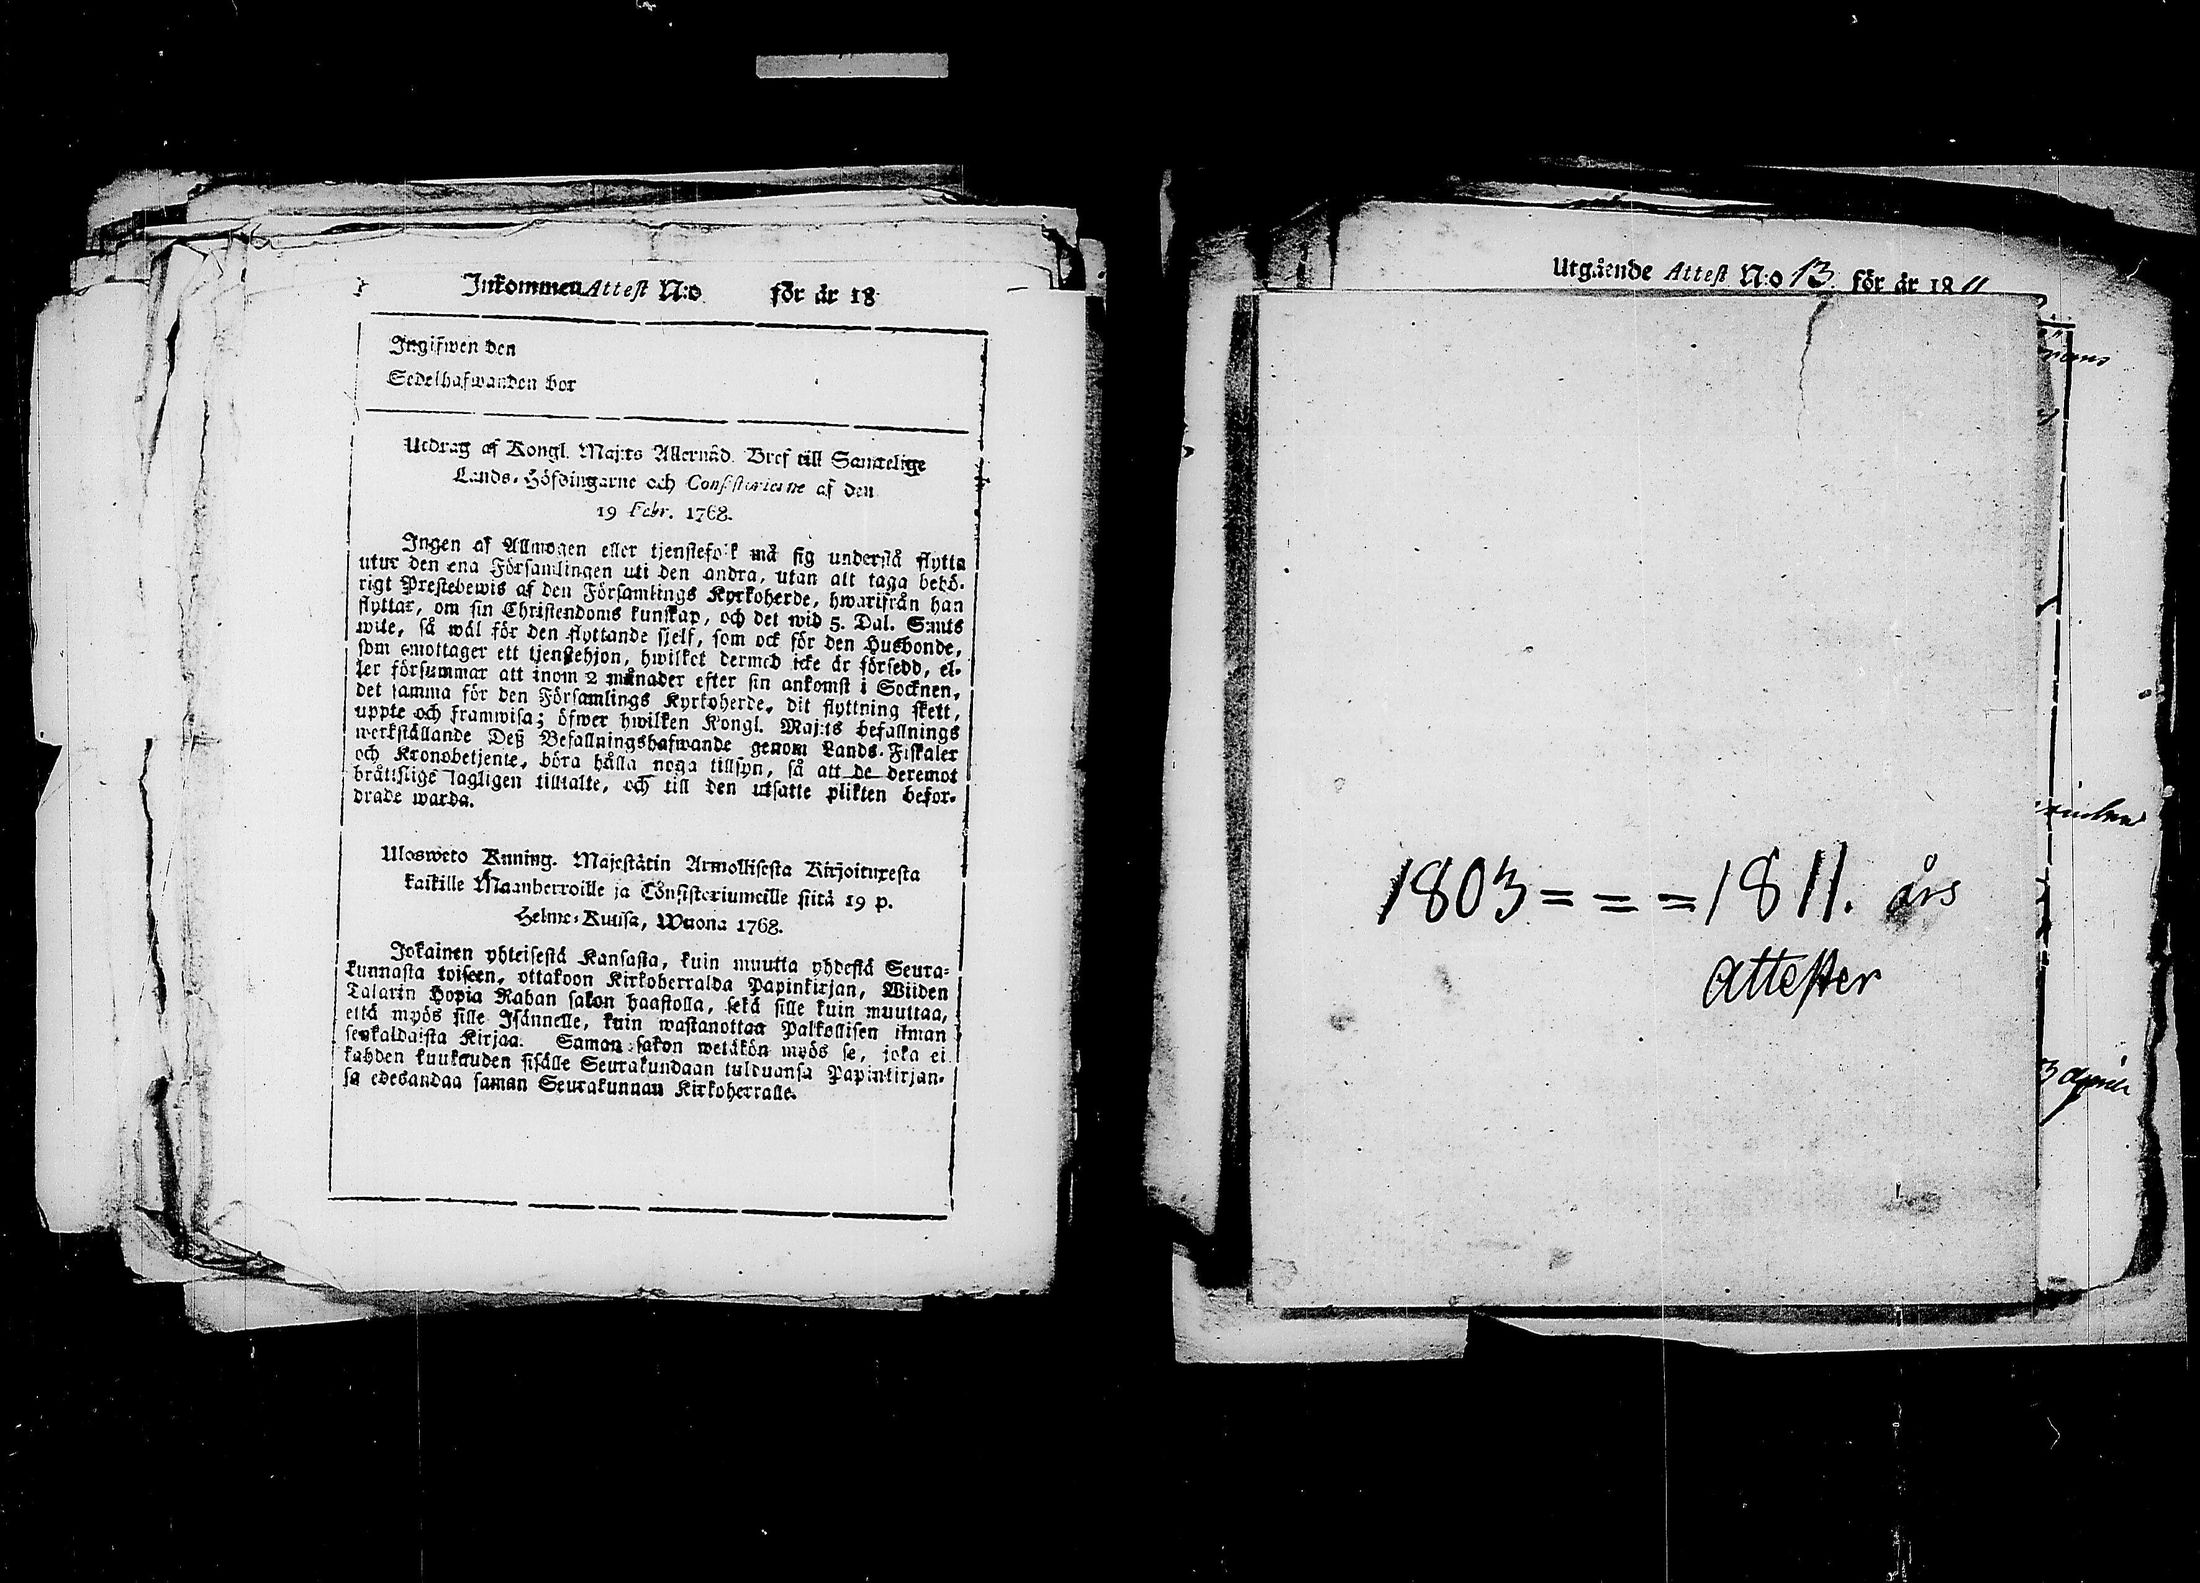 Inkommen Attest N:o för år 18
Ingifwen den
Sedelhafwanden bor
Utdrag af Kongl. Maj:ts Allernåd. Bref till Samtelige
Lands-Höfdingarne och Consistorierne af den
19 Febr. 1768.
Ingen af Allmogen eller tjenstefolk må sig understå flytta
utur den ena Församlingen uti den andra, utan att taga behö-
rigt Prestebewis af den Församlings Kyrkoherde, hwarifrån han
flyttar, om sin Christendoms kunskap, och det wid 5. Dal. S:mts
wite, så wäl för den flyttande sjelf, som ock för den Husbonde,
som emottager ett tjenstehjon, hwilket dermed icke är försedd, el-
ler försummar att inom 2 månader efter sin ankomst i Socknen,
det samma för den Församlings Kyrkoherde, dit flyttning skett,
uppte och framwisa; öfwer hwilken Kongl. Maj:ts befallnings
werkställande Deß Befallningshafwande genom Lands-Fiskaler
och Kronobetjente, böra hålla noga tillsyn, så att de deremot
bråttslige lagligen tilltalte, och till den utsatte plikten befor-
drade warda.
Ulosweto Kuning. Majestätin Armollisesta Kirjoituxesta
kaikille Maanherroille ja Consistoriumeille siitä 19 p.
Helme-Kuusa, Wuona 1768.
Jokainen yhteisestä Kansasta, kuin muutta yhdestä Seura-
kunnasta toiseen, ottakoon Kirkoherralda Papinkirjan, Wiiden
Talarin Hopia Rahan sakon haastolla, sekä sille kuin muuttaa,
että myös sille Isännelle, kuin wastanottaa Palkollisen ilman
senkaldaista Kirjaa. Saman sakon wetäkön myös se, joka ei
kahden kuukauden sisälle Seurakundaan tulduansa Papinkirjan-
sa edesandaa saman Seurakunnan Kirkoherralle.
Utgående Attest N:o 13 för år 1811
1803 = = = 1811. års
attester
3 April